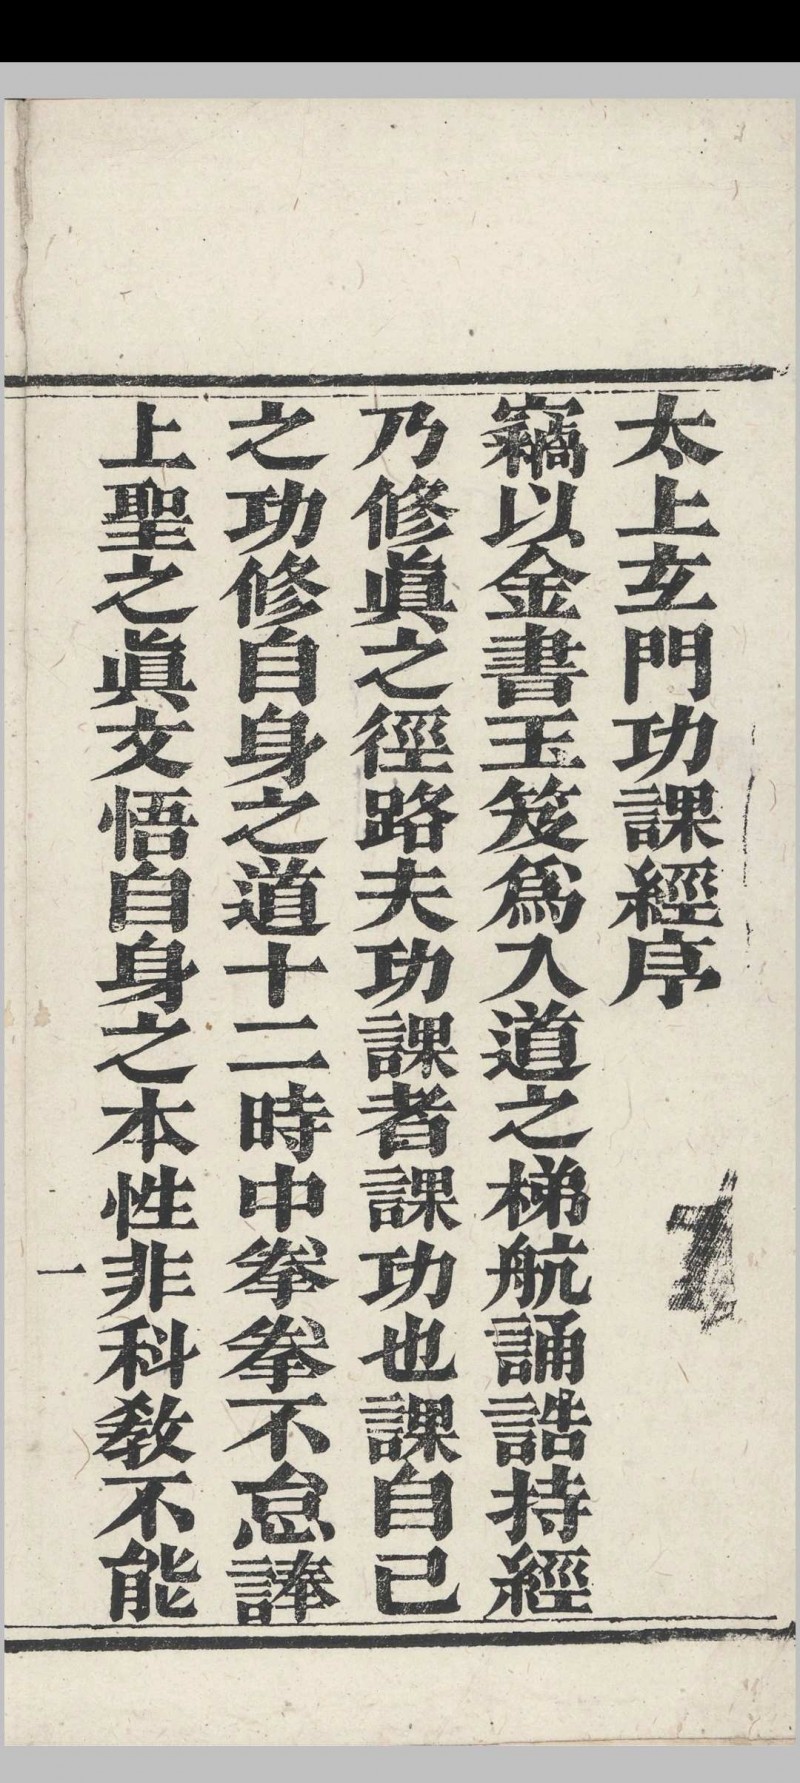 太上玄門功課經序
竊以金書玉笈爲入道之梯航誦誥持經
乃修眞之徑路夫功課者課功也課自己
之功修自身之道十二時中拳拳不怠諱
上聖之眞文悟自身之本性非科教不能
一